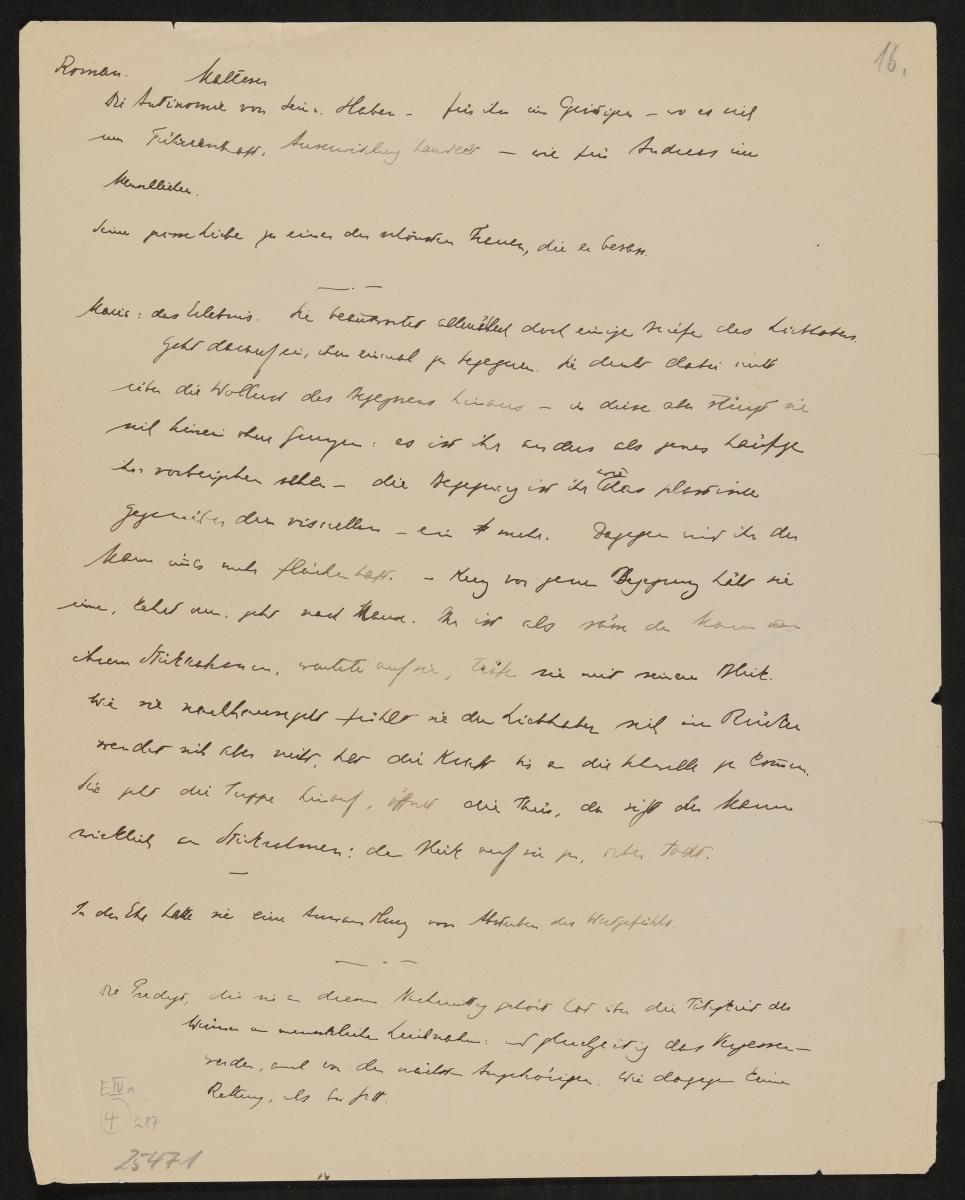 16.
Roman. Malteser
Die Antinomie von Sein u. Haben – für ihn im Geistigen – wo es sich
um Führerschaft, handelt – wie für Andreas im
Menschlichen.
Seine grosse Liebe zu einer der schönsten Frauen, die er besass.
Maria: das Erlebnis. Sie beantwortet allmählich doch einige Briefe des Liebhabers.
Geht darauf ein, ihm einmal zu begegnen. Sie denkt dabei nicht
über die Wollust des Begegnens hinaus – in diese aber stürzt sie
sich hinein ohne Grenzen: es ist ihr anders als jenes häufige
ihn vorbeigehen sehen – die Begegnung ist ihr wie das plastische
gegenüber dem visuellen – ein mehr. Dagegen wird ihr der
Mann immer mehr flächenhaft. – Kurz vor jener Begegnung hält sie
inne, kehrt um, geht nach Hause. Ihr ist als sässe der Mann am
ihrem Stickrahmen, wartete auf sie, träfe sie mit seinem Blick.
Wie sie nachhausegeht fühlt sie den Liebhaber sich im Rücken
wendet sich aber nicht, hat die Kraft bis an die Schwelle zu kommen.
Sie geht die Treppe hinauf, öffnet die Thür, da sitzt der Mann
wirklich am Stickrahmen: den Blick auf sie zu, aber todt.
In der Ehe hatte sie eine Anwandlung von Absterben des Weltgefühls.
Die Predigt, die sie an diesem Nachmittag gehört hat über die
an menschlicher Theilnahme: und gleichzeitig das Vergessen-
werden, auch von den nächsten Angehörigen. Wie dagegen keine
Rettung, als bei Gott.
E IV A
4 287
25471